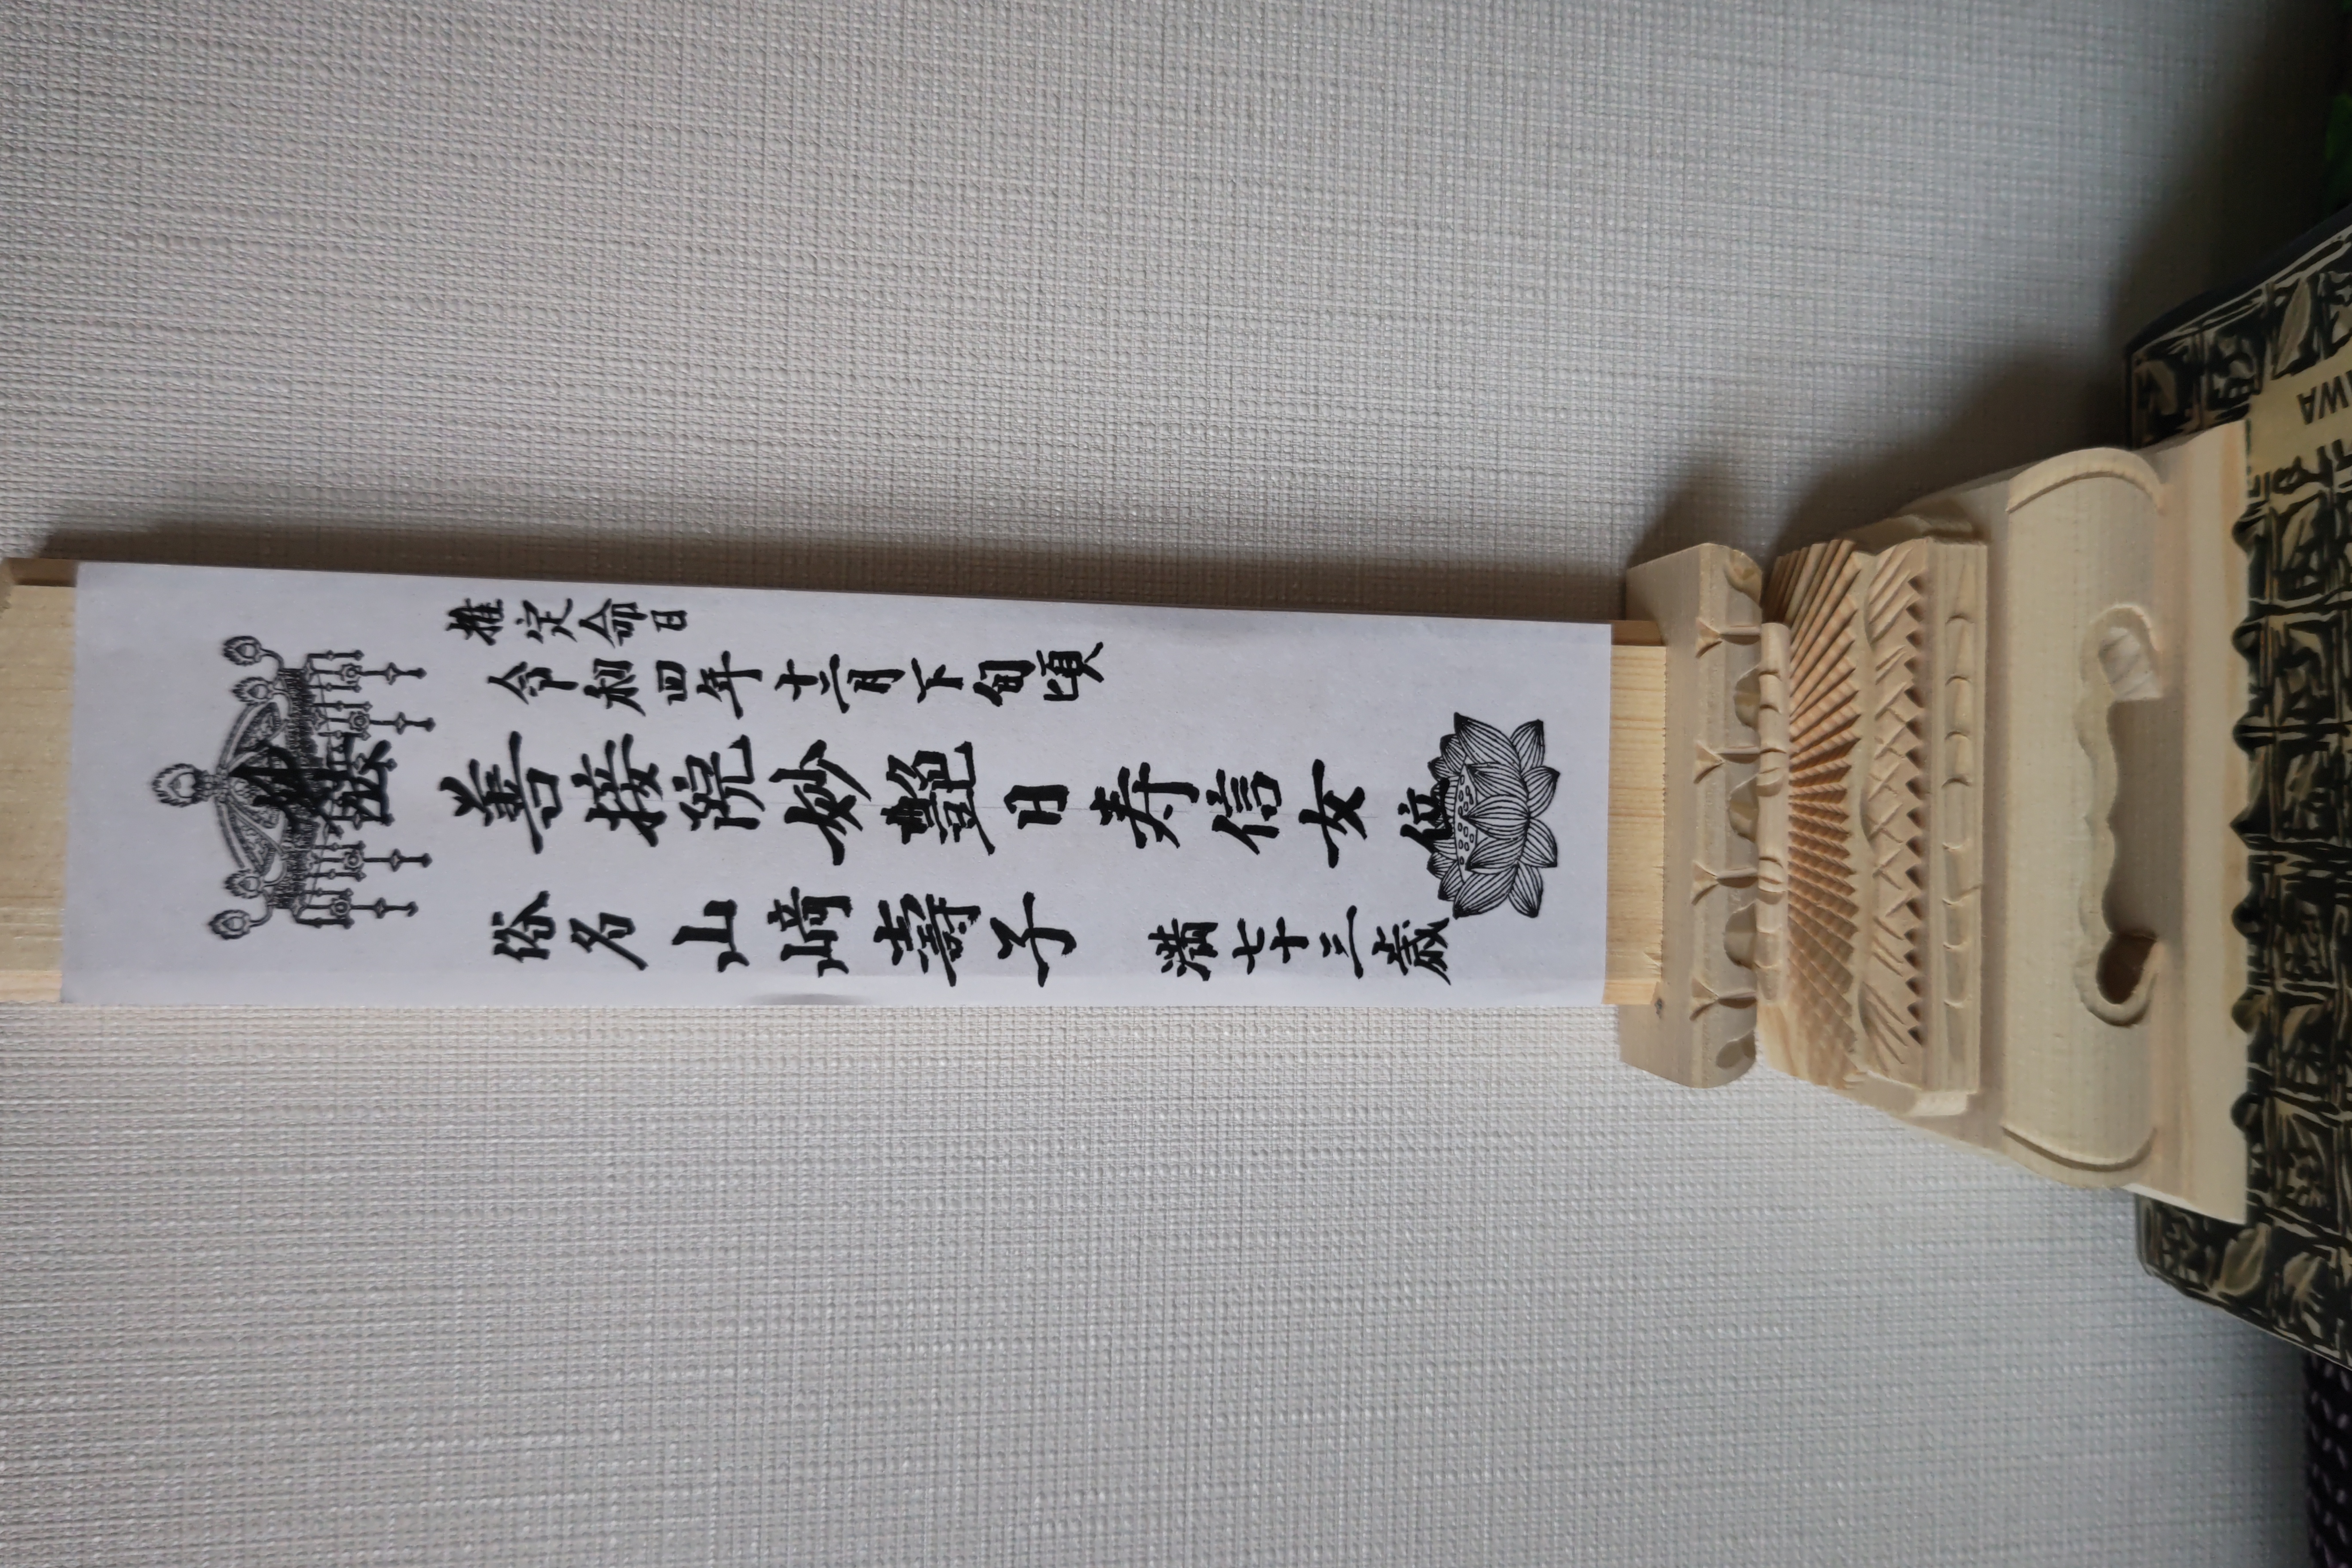 推定命日
令和四年十二月下旬頃
妙法 善接院妙艶日寿信女 位
俗名 山﨑壽子 満七十三歳
WA